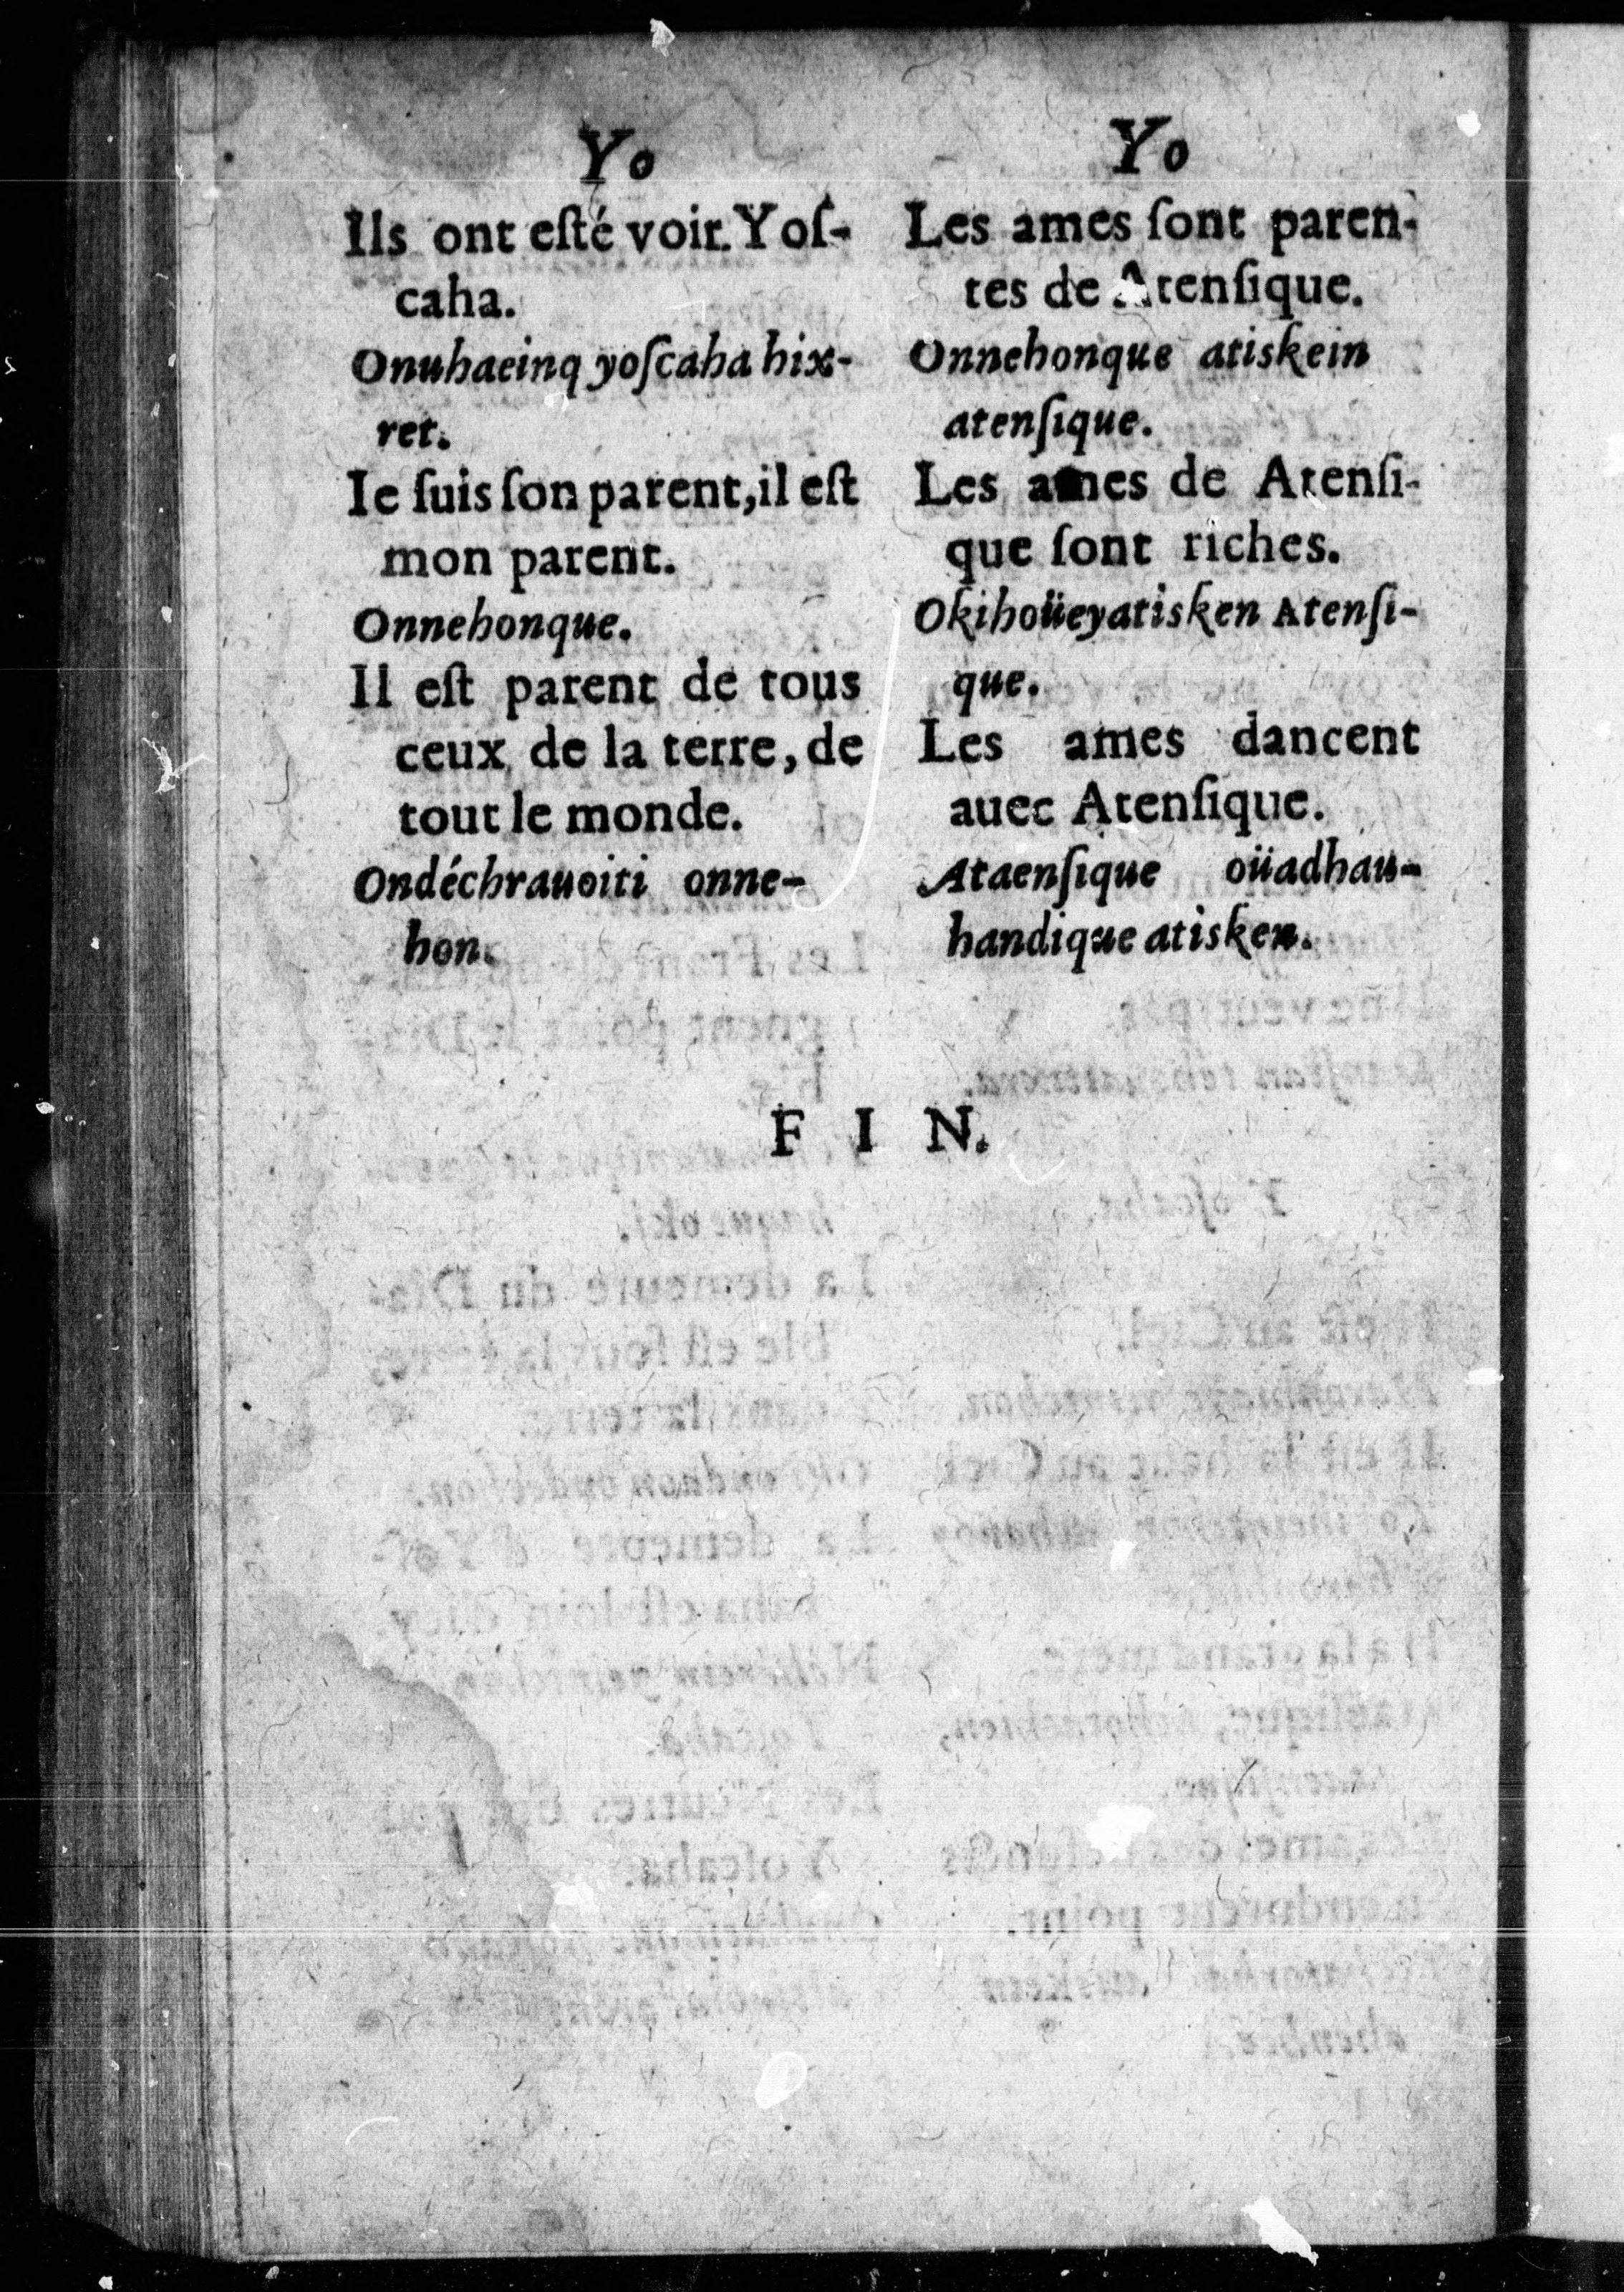 Yo
Ils ont eſté voir. Yoſ-
caha.
Onuhaeinq yoſcaha hix-
ret.
Ie ſuis ſon parent, il eſt
mon parent.
Onnehonque.
Il eſt parent de tous
ceux de la terre, de
tout le monde.
Ondéchrauoiti onne-
hon.
Yo
Les ames ſont paren-
tes de Atenſique.
Onnehonque atiskein
atenſique.
Les ames de Atenſi-
que ſont riches.
Okihoüeyatisken Atenſi-
que.
Les ames dancent
auec Atenſique.
Ataenſique oüadhau-
handique atisken.
F I N.